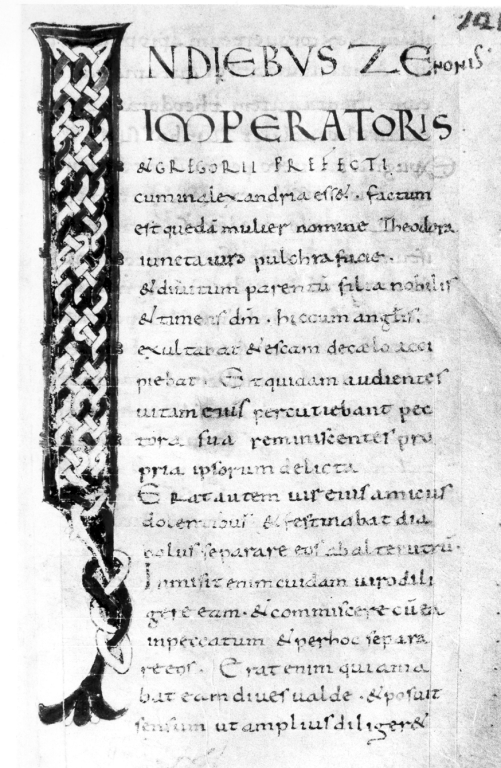 121
INDIEBVS ZENONIS
IMPERATORIS
& GREGORII PREFECTI
cum inalexandria ess&. factum
est quedā mulier nomine Theodora
iuncta uiro pulchra facie.
& diuitum parentū filia nobilis
& timens dm̄. hic cum anglis.
exultabat & escam decaelo acci
piebat. Et quidam audientes
uitam eius percutiebant pec
tora sua reminiscentes pro
pria ipsorum delicta
Erat autem uir eius amicus
dolentibus & festinabat dia
bolus separare eos abalterutrū.
Inmisit enim cuidam uiro dili
gere eam. & commiscere cū ea
inpeccatum & per hoc separa
re eos. Erat enim qui ama
bat eam diues ualde. & posuit
sensum ut amplius diliger&